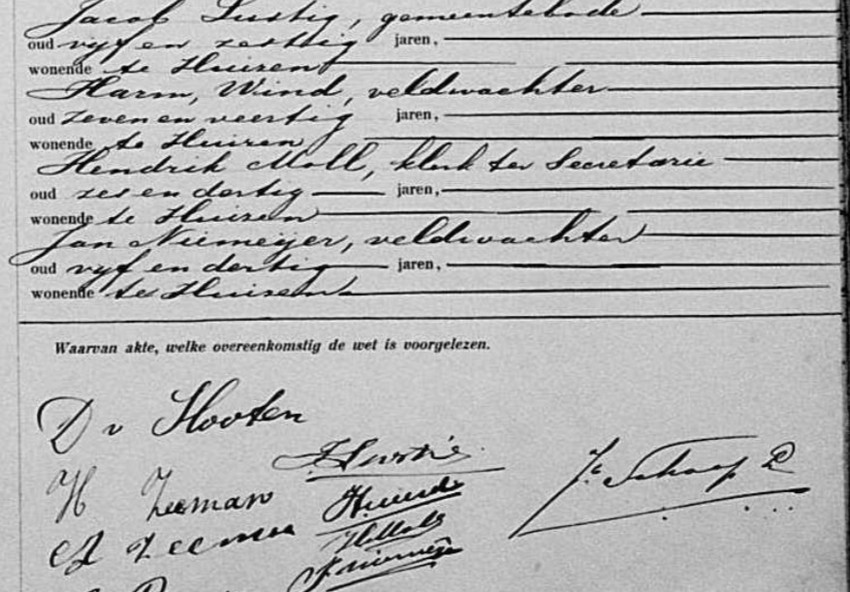 Jacob Lustig, gemeentebode
oud vijf en zestig jaren,
wonende te Huizen
Harm, Wind, veldwachter
oud zeven en veertig jaren,
wonende te Huizen
Hendrik Moll, klerk ter Secretarie
oud zes en dertig jaren,
wonende te Huizen
Jan Niemeijer, veldwachter
oud vijf en dertig jaren,
wonende te Huizen
Waarvan akte, welke overeenkomstig de wet is voorgelezen.
D v Hooten
J Lustig
H Zeeman
Zeeman
HMoll
J Niemeijer
Schaap